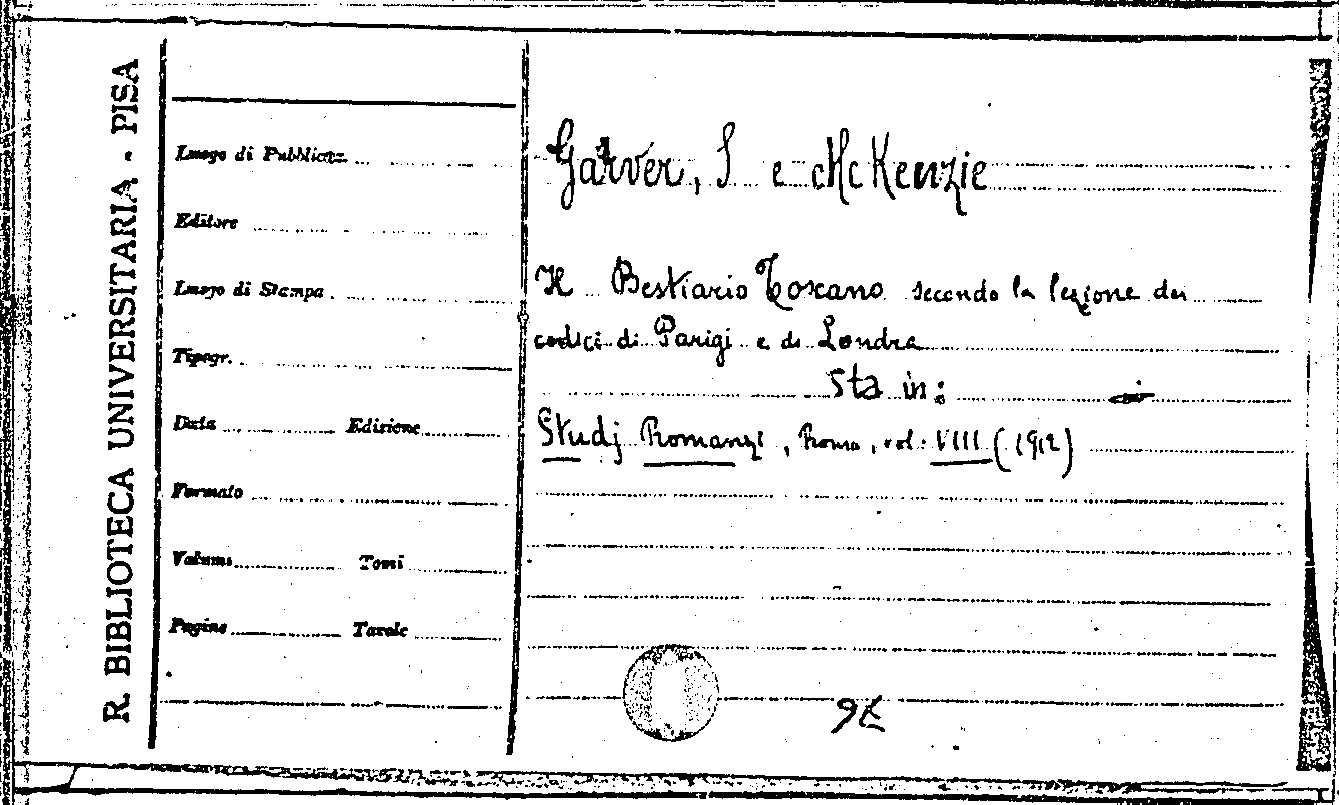 R. BIBLIOTECA UNIVERSITARIA - PISA
Luogo di Pubblicaz.
Editore
Luogo di Stampa
Tipogr.
Data Edizione
Formato
Volumi Tomi
Pagine Tavole
Garver, J e McKenzie
Il Bestiario Toscano secondo la lezione dei
codici di Parigi e di Londra
Sta in:
Studj Romanzi, Roma, vol. VIII (1912)